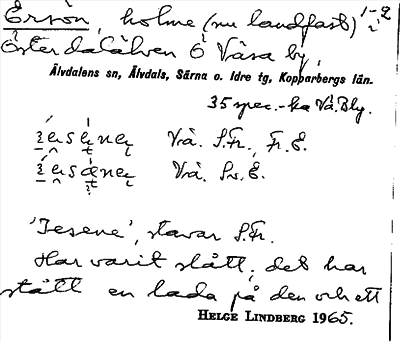 Ersön, holme (nu landfast) 1-2
i Österdalälven Ö Våsa by,
Älvdalens sn, Älvdals, Särna o. Idre tg, Kopparbergs län.
35 spec.-ka Vå.Bly.
Vrå. S.Fr., Fr.E.
Vrå. Sv.E.
'Iesene', stavar S.Fr.
Har varit slått, det har
stått en lada på den och ett
HELGE LINDBERG 1965.